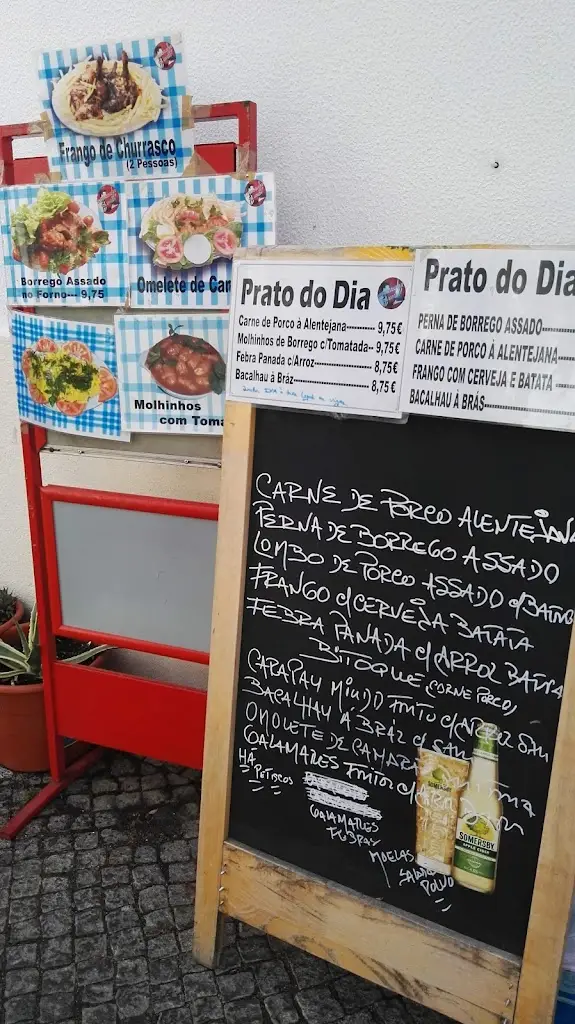 Frango de Churrasco
(2 Pessoas)
Borrego Assado
no Forno--- 9,75
Omelete de Cam
Molhinhos
com Toma
Prato do Dia
Carne de Porco à Alentejana---------- 9,75€
Molhinhos de Borrego c/Tomatada-- 9,75€
Febra Panada c/Arroz------------------ 8,75€
Bacalhau à Bráz------------------------- 8,75€
Prato do Dia
PERNA DE BORREGO ASSADO-----
CARNE DE PORCO À ALENTEJANA--
FRANGO COM CERVEJA E BATATA
BACALHAU À BRÁS-----------------
CARNE DE PORCO ALENTEJANA
PERNA DE BORREGO ASSADO
LOMBO DE PORCO ASSADO c/BATATA
FRANGO c/CERVEJA BATATA
FEBRA PANADA c/ARROZ BATATA
BITOQUE (CORNE PORCO)
CARAPAU MIUDO FRITO c/ARROZ SAL
BACALHAU Á BRÁZ c/ SAL
OMOLETE DE CAMARA
CALAMARES FRITOS c/ARROZ
HÁ
PETISCOS
CALAMARES
FEBRAS
MOELAS
SALADA
POLVO
SOMERSBY
APPLE CIDER